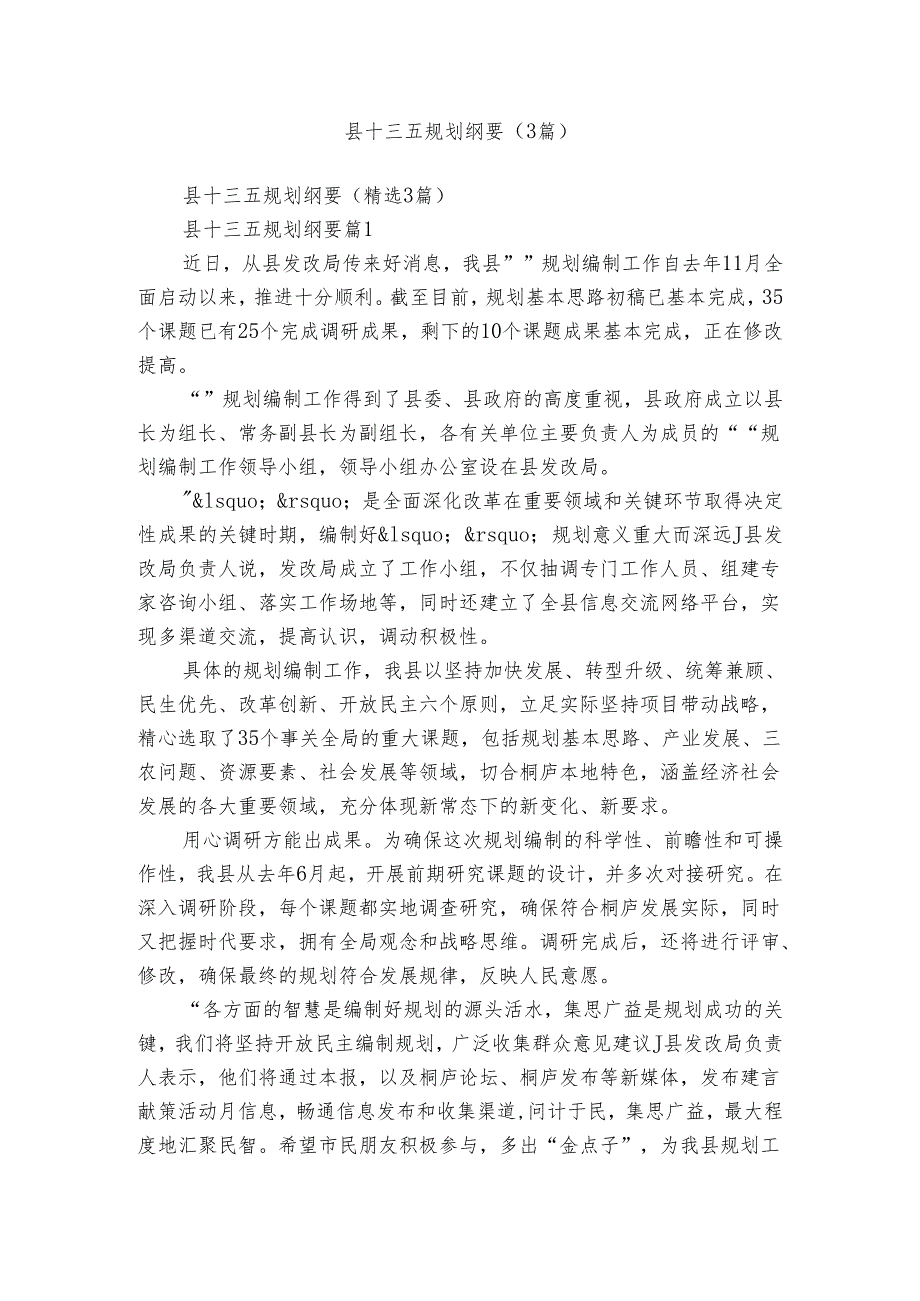 县十三五规划纲要（3篇）
县十三五规划纲要（精选3篇）
县十三五规划纲要篇1
近日，从县发改局传来好消息，我县””规划编制工作自去年11月全
面启动以来，推进十分顺利。截至目前，规划基本思路初稿已基本完成，35
个课题已有25个完成调研成果，剩下的10个课题成果基本完成，正在修改
提高。
“”规划编制工作得到了县委、县政府的高度重视，县政府成立以县
长为组长、常务副县长为副组长，各有关单位主要负责人为成员的““规
划编制工作领导小组，领导小组办公室设在县发改局。
"&lsquo；&rsquo；是全面深化改革在重要领域和关键环节取得决定
性成果的关键时期，编制好&lsquo；&rsquo；规划意义重大而深远J县发
改局负责人说，发改局成立了工作小组，不仅抽调专门工作人员、组建专
家咨询小组、落实工作场地等，同时还建立了全县信息交流网络平台，实
现多渠道交流，提高认识，调动积极性。
具体的规划编制工作，我县以坚持加快发展、转型升级、统筹兼顾、
民生优先、改革创新、开放民主六个原则，立足实际坚持项目带动战略，
精心选取了35个事关全局的重大课题，包括规划基本思路、产业发展、三
农问题、资源要素、社会发展等领域，切合桐庐本地特色，涵盖经济社会
发展的各大重要领域，充分体现新常态下的新变化、新要求。
用心调研方能出成果。为确保这次规划编制的科学性、前瞻性和可操
作性，我县从去年6月起，开展前期研究课题的设计，并多次对接研究。在
深入调研阶段，每个课题都实地调查研究，确保符合桐庐发展实际，同时
又把握时代要求，拥有全局观念和战略思维。调研完成后，还将进行评审、
修改，确保最终的规划符合发展规律，反映人民意愿。
“各方面的智慧是编制好规划的源头活水，集思广益是规划成功的关
键，我们将坚持开放民主编制规划，广泛收集群众意见建议J县发改局负责
人表示，他们将通过本报，以及桐庐论坛、桐庐发布等新媒体，发布建言
献策活动月信息，畅通信息发布和收集渠道,问计于民，集思广益，最大程
度地汇聚民智。希望市民朋友积极参与，多出“金点子”，为我县规划工